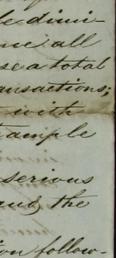 dimi-
me all
se a total
nsactions;
with
ample
serious
and, the
ion follow-